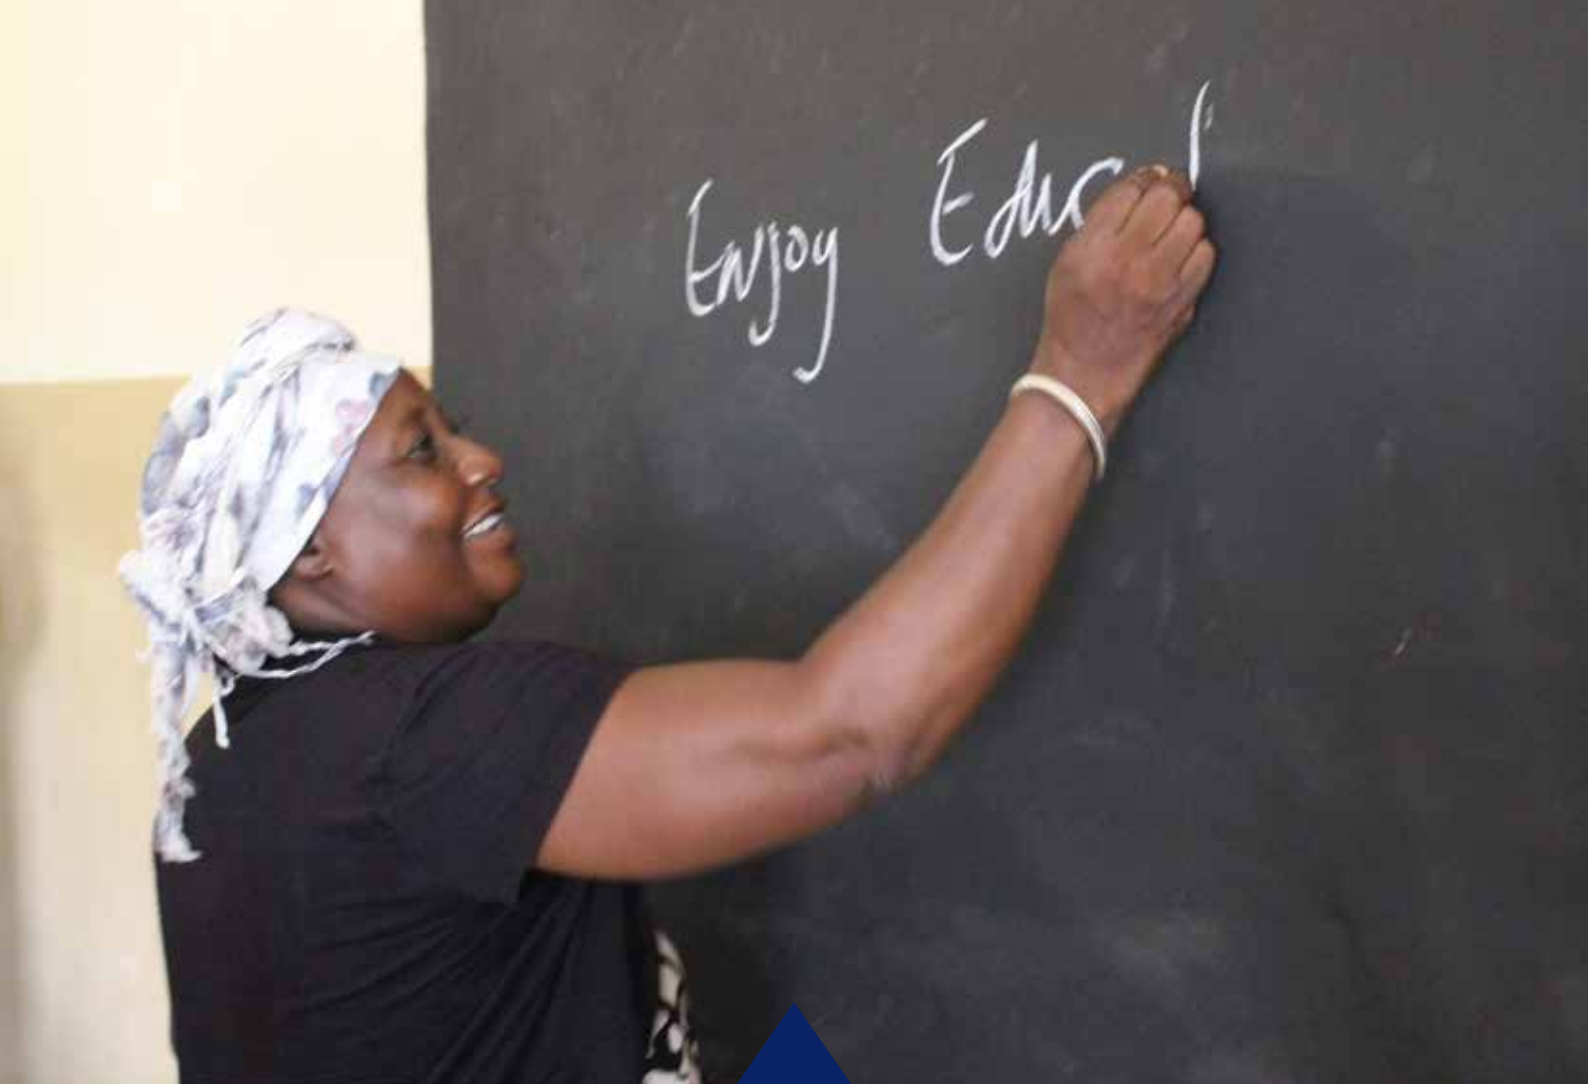 Enjoy Educ